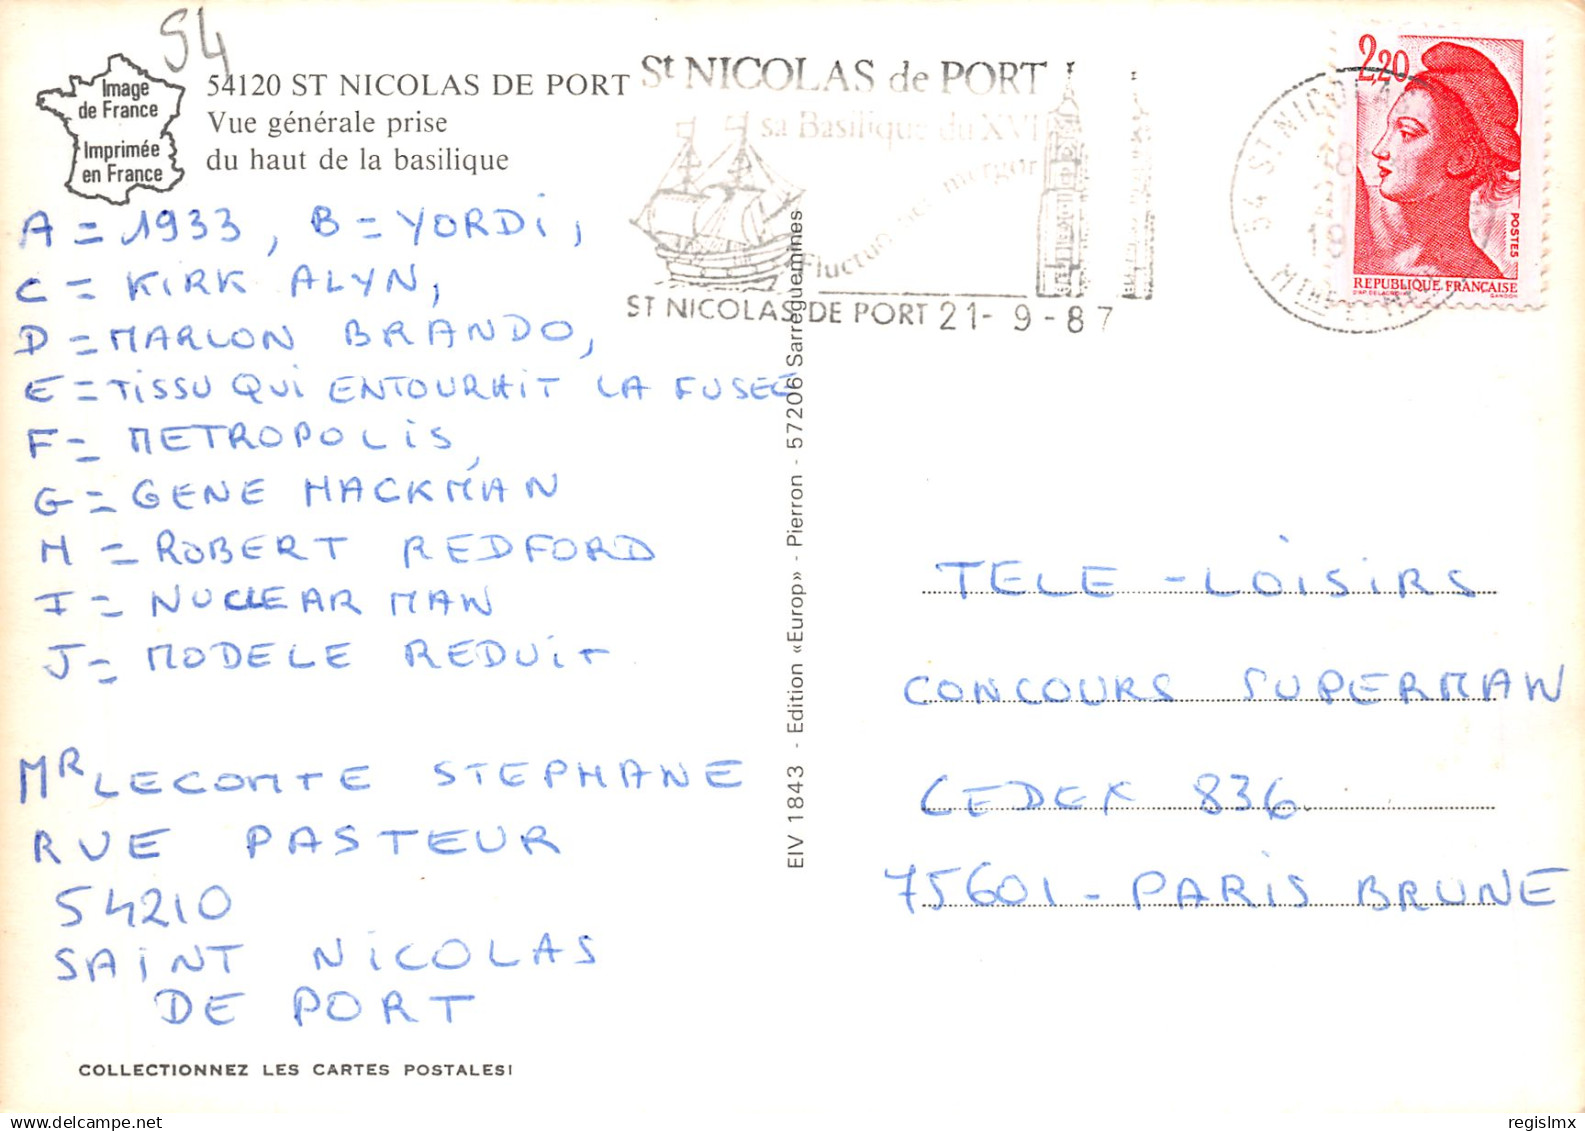 54
Image
de France
Imprimée
en France
54120 ST NICOLAS DE PORT
Vue générale prise
du haut de la basilique
St NICOLAS de PORT
sa Basilique du XVI
Fluctuo nec mergor
ST NICOLAS DE PORT 21-9-87
54 ST NICOLAS
2,20
POSTES
REPUBLIQUE FRANÇAISE
GANDON
A = 1933, B = YORDI,
C = KIRK ALYN,
D = MARLON BRANDO,
E = TISSU QUI ENTOURAIT LA FUSEE
F = METROPOLIS,
G = GENE HACKMAN
H = ROBERT REDFORD
I = NUCLEAR MAN
J = MODELE REDUIT
MR LECOMTE STEPHANE
RUE PASTEUR
54210
SAINT NICOLAS
DE PORT
COLLECTIONNEZ LES CARTES POSTALES!
EIV 1843 - Edition «Europ» - Pierron - 57206 Sarreguemines
TELE - LOISIRS
CONCOURS SUPERMAN
CEDEX 836.
75601 - PARIS BRUNE
regislmx